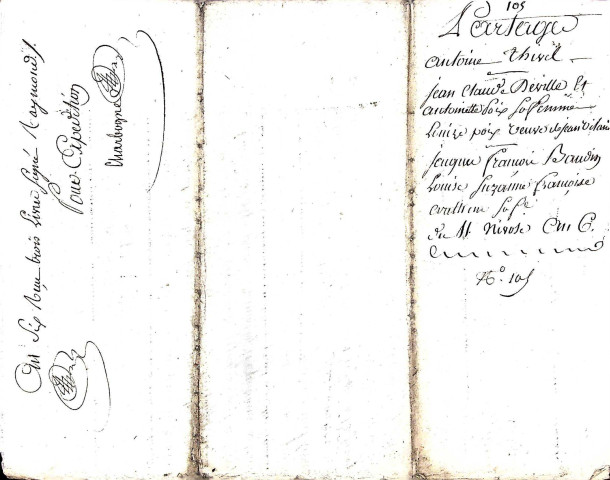 105
Partage
antoine Thivel
jean Claude Deville Et
antoinette poix sa femme
poix veuve de jean
françois Baudin
Louise Suzanne françoise
sa fe.
du 11 Nivose an 6.
No. 105
an Six Reçu trois livres Signé Raymond
Pour Expedition
Charbogne